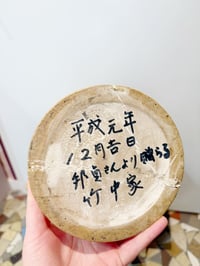 平成元年
12月吉日
邦貞さんより贈らる
竹中家